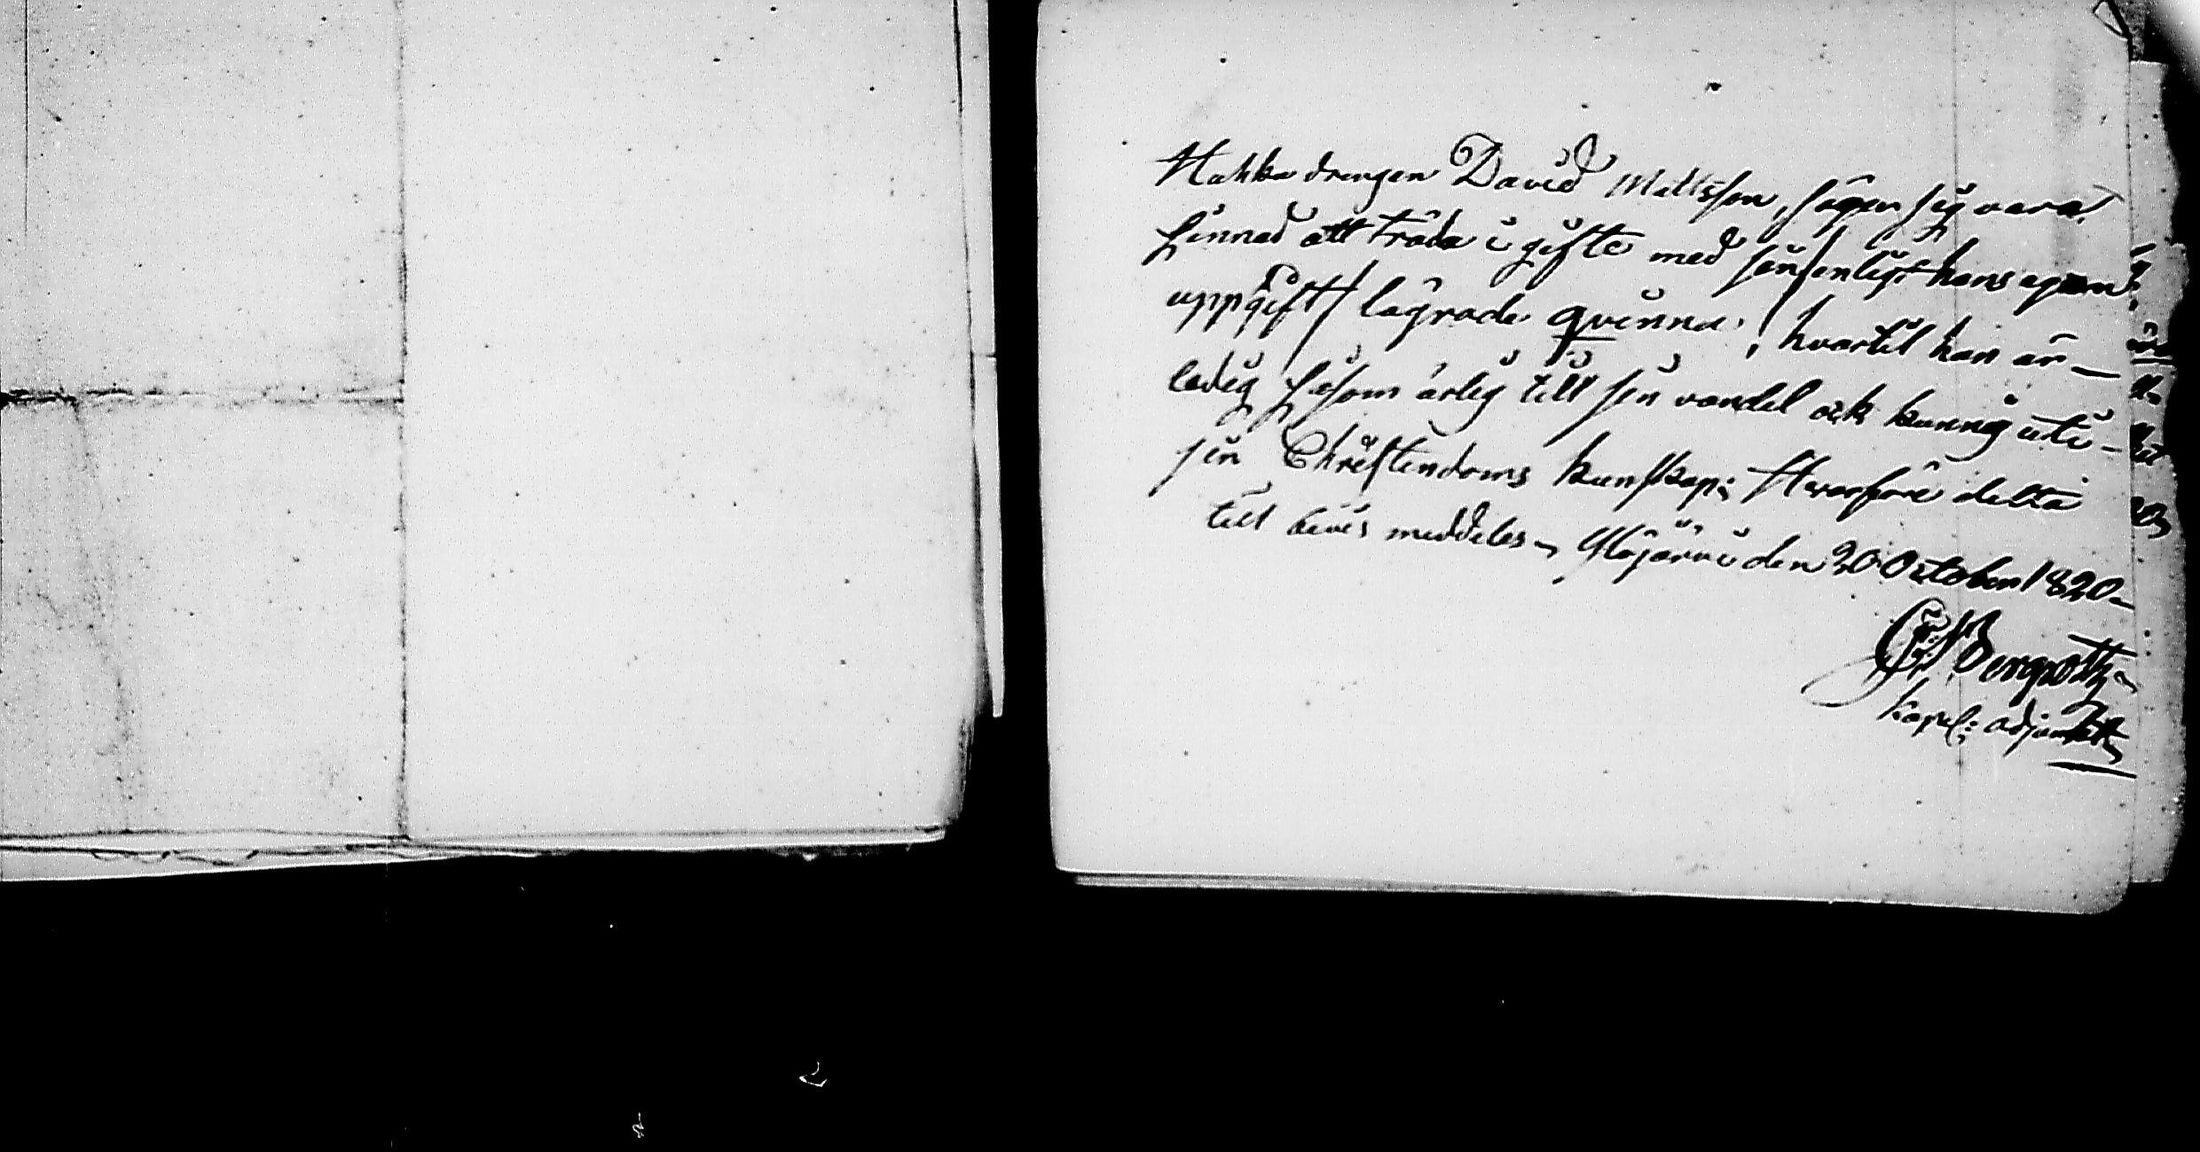 Hahka drengen David Mattsson, säger sig vara
sinnad att träda i gifte med sin /enligt hans egen
uppgift/ lägrade qvinna, hvartil han är
ledig såsom ärlig till sin vandel och kunnig uti
sin Christendoms kunskap; Hvarföre detta
till bevis meddeles. Ylöjärvi den 20 October 1820
Bergroth
Kapel: adjunkt